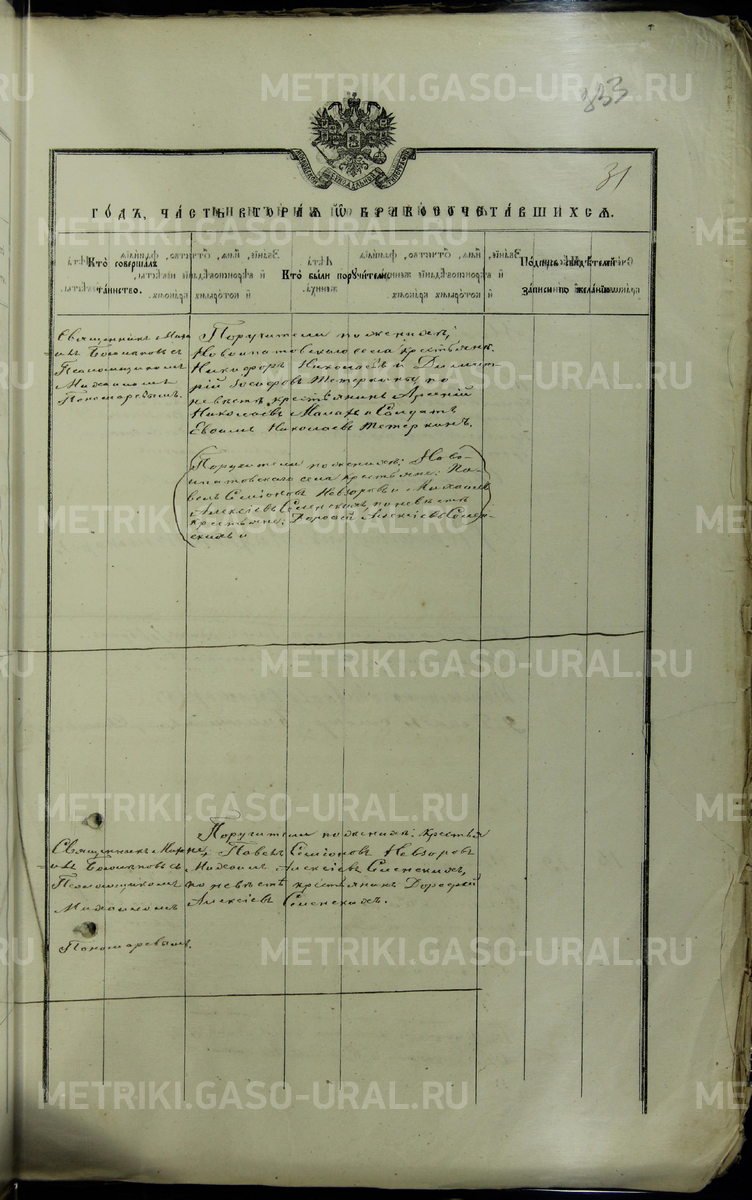 METRIKI.GASO-URAL.RU
31
ГОДЪ, ЧАСТЬ ВТОРАЯ, Ѡ БРАКОСОЧЕТАВШИХСЯ.
Кто совершалъ таинство.
Кто были поручители.
Подпись свидѣтелей записи по желанію.
Священникъ Миха
илъ
съ
Псаломщикомъ
Михаиломъ
Пономаревымъ.
Поручители по женихѣ:
Новоипатовскаго села крестьяне:
Никифоръ Николаевъ и Димит
рій Тетеркины по
невѣстѣ крестьянинъ
Николаевъ и Солдатъ
Николаевъ Тетеркинъ.
Поручители по женихѣ: Ново-
ипатовскаго села крестьяне: Па-
велъ Симіоновъ Невзоровъ и Михаилъ
Алексіевъ Семенскихъ, по невѣстѣ
крестьяне: Дорофей Алексіевъ Семен-
скихъ и
Священникъ Миха
илъ съ
Псаломщикомъ
Михаиломъ
Пономаревымъ.
Поручители по женихѣ: крестья
не; Павелъ Симіоновъ Невзоровъ
Михаилъ Алексіевъ Семенскихъ,
по невѣстѣ крестьянинъ Дорофей
Алексіевъ Семенскихъ.